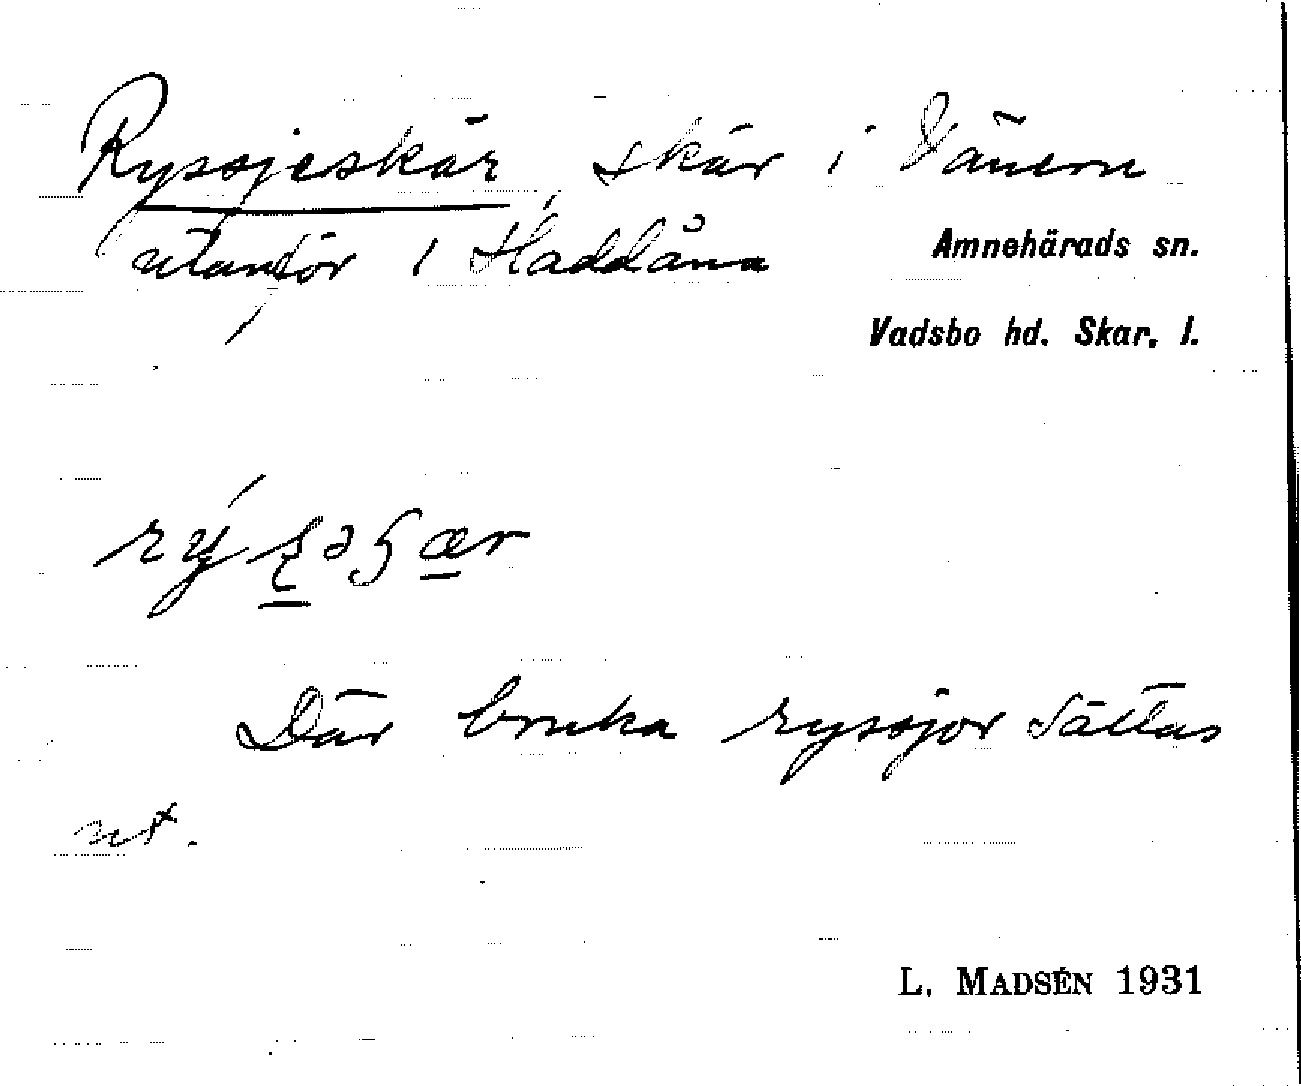 Ryssjeskär, skär i Vänern
utanför / Haddåna
Amnehärads sn.
Vadsbo hd. Skar. l.
Där bruka ryssjor sättas
ut.
L. MADSÉN 1931